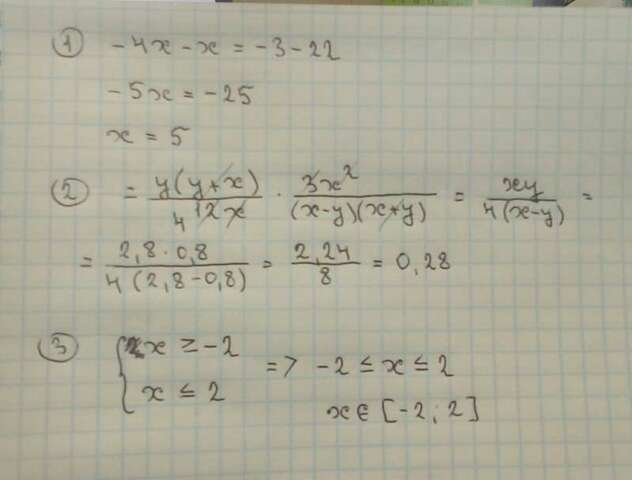 ① -4x - x = -3 - 22
-5x = -25
x = 5
② = y(y+x) / 12x 4 · 3x² / (x-y)(x+y) = xy / 4(x-y) =
= 2,8 · 0,8 / 4(2,8-0,8) = 2,24 / 8 = 0,28
③ { x ≥ -2 => -2 ≤ x ≤ 2
x ≤ 2
x ∈ [-2; 2]